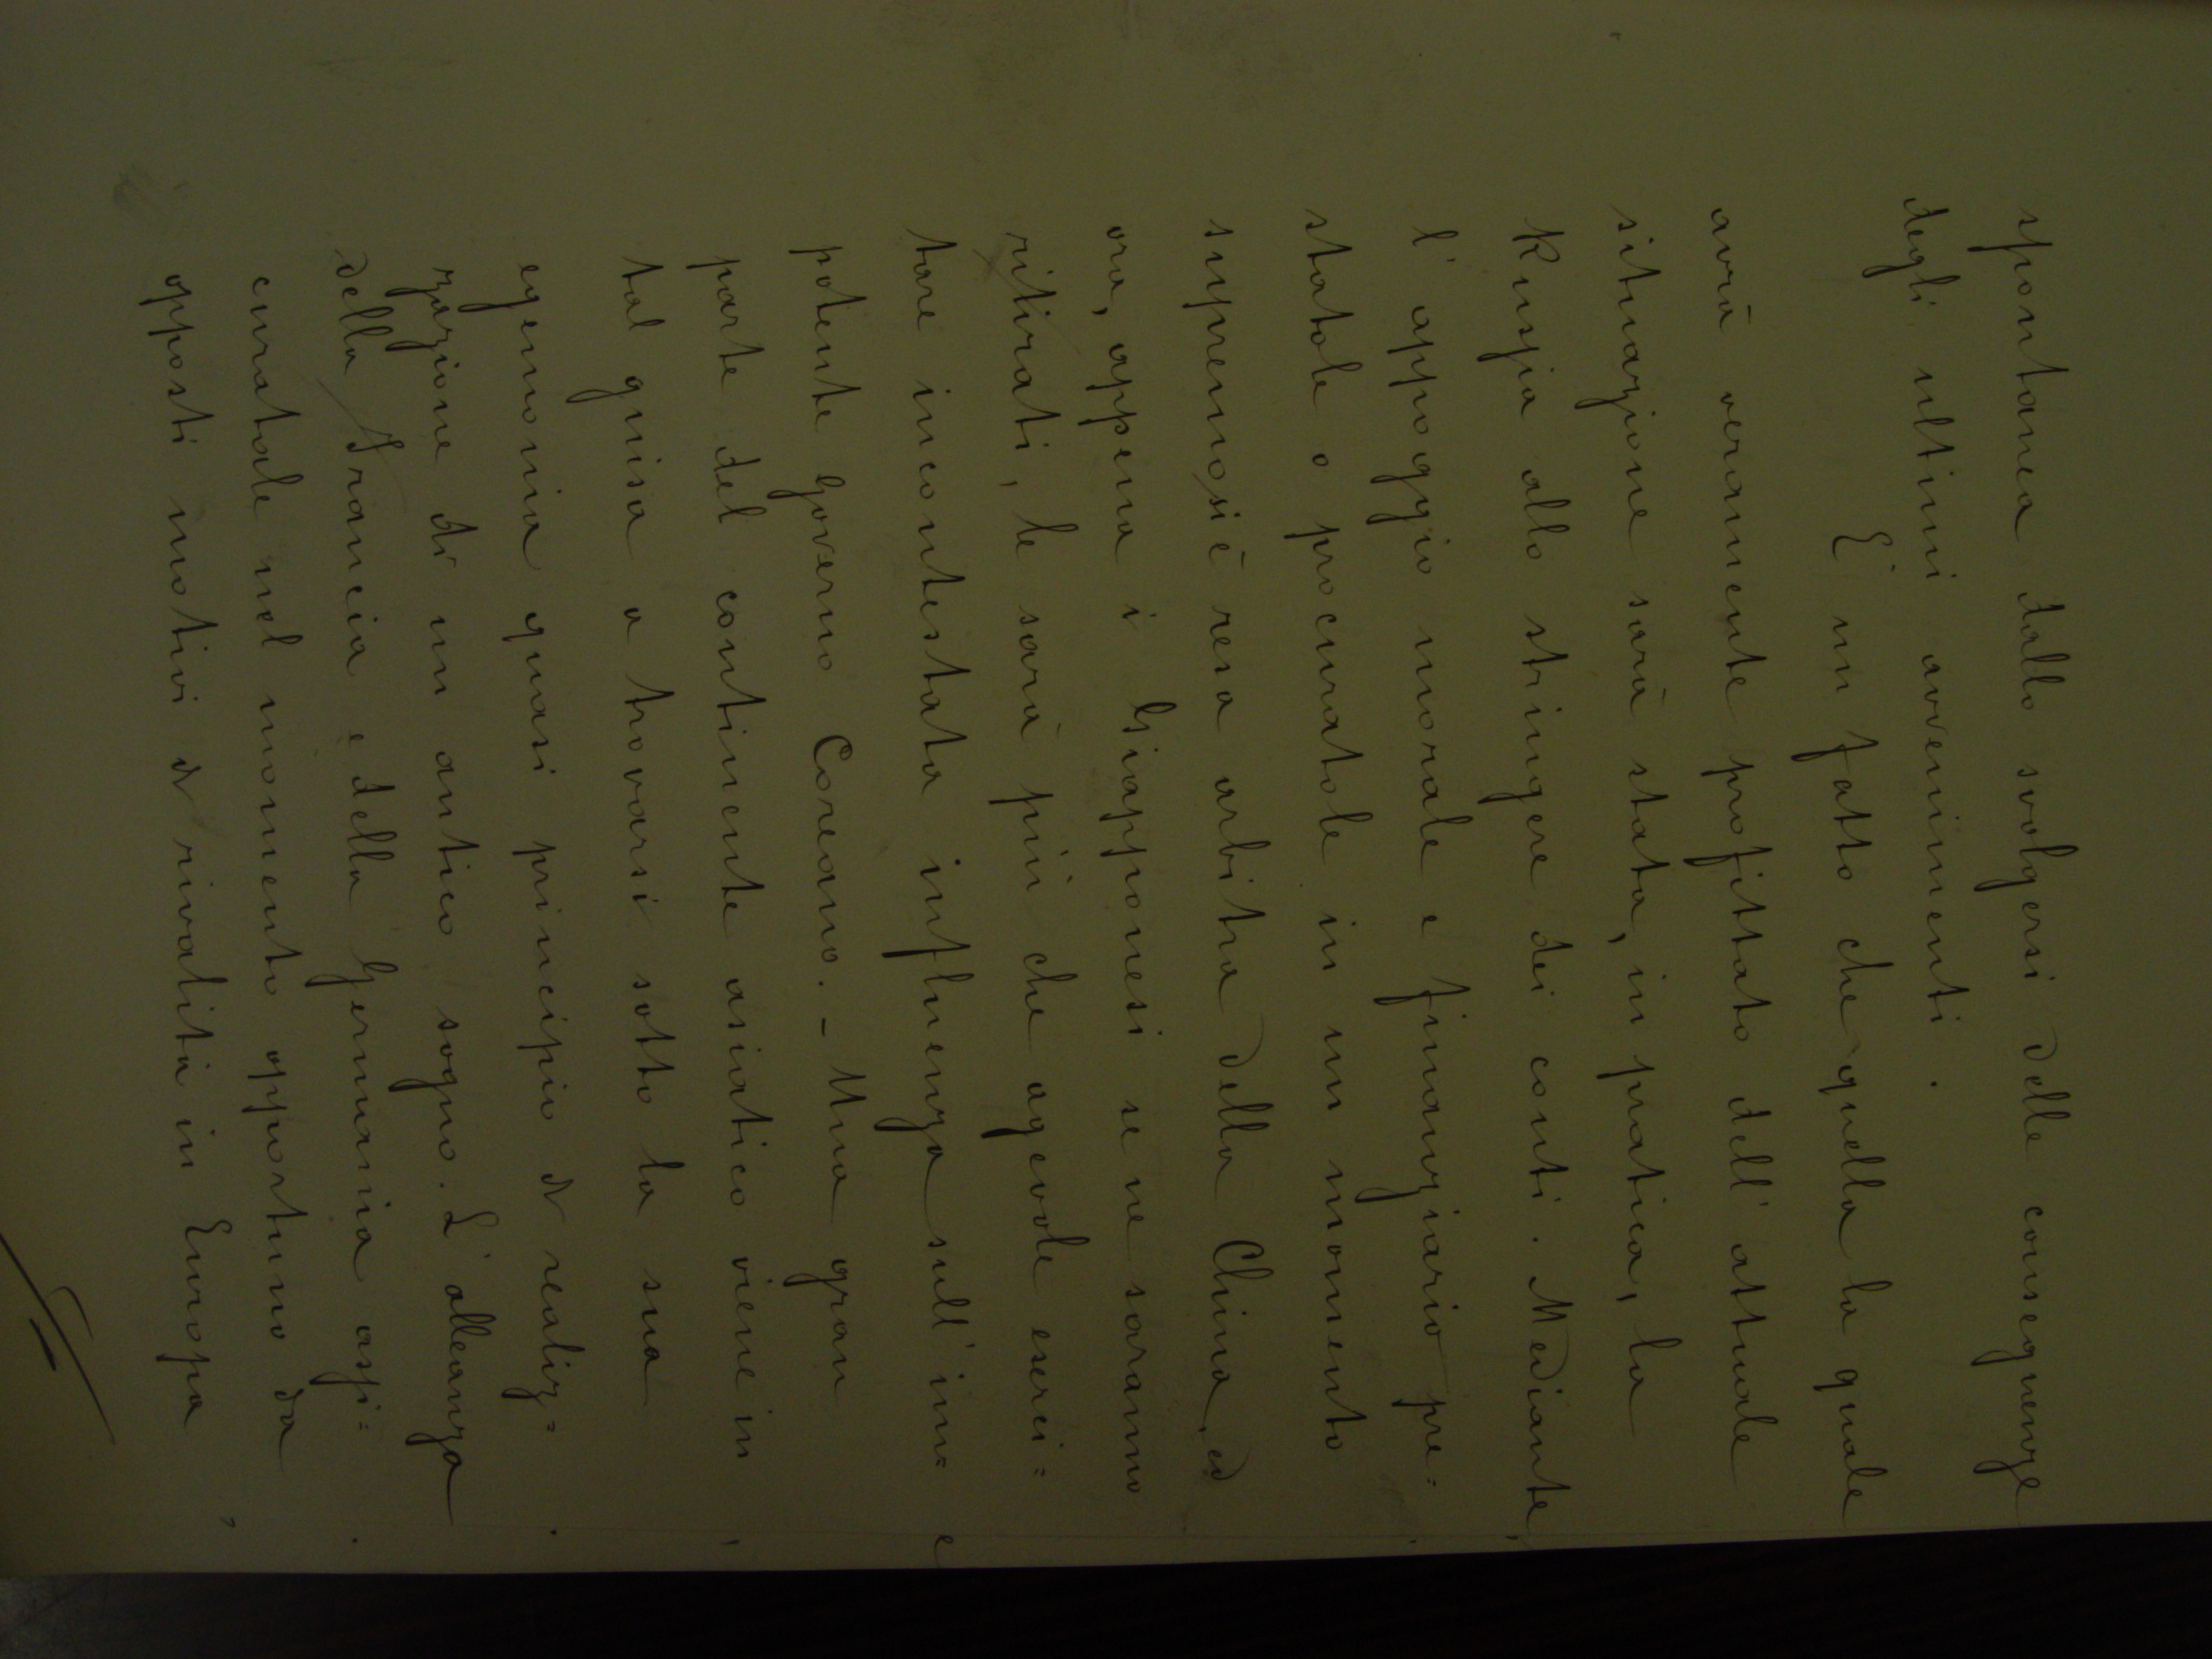 spontanea dallo svolgersi delle conseguenze
degli ultimi avvenimenti.
E' un fatto che quella la quale
avrà veramente profittato dell'attuale
situazione sarà stata, in pratica, la
Russia allo stringere dei conti. Mediante
l'appoggio morale e finanziario pre=
statole o procuratole in un momento
supremo si è resa arbitra della China, ed
ora, appena i Giapponesi se ne saranno
ritirati, le sarà più che agevole eserci=
tare incontestata influenza sull'im=
potente Governo Coreano. - Una gran
parte del continente asiatico viene in
tal guisa a trovarsi sotto la sua
egemonia quasi principio di realiz=
zazione di un antico sogno. L'alleanza
della Francia e della Germania assi=
curatale nel momento opportuno da
opposti motivi di rivalità in Europa